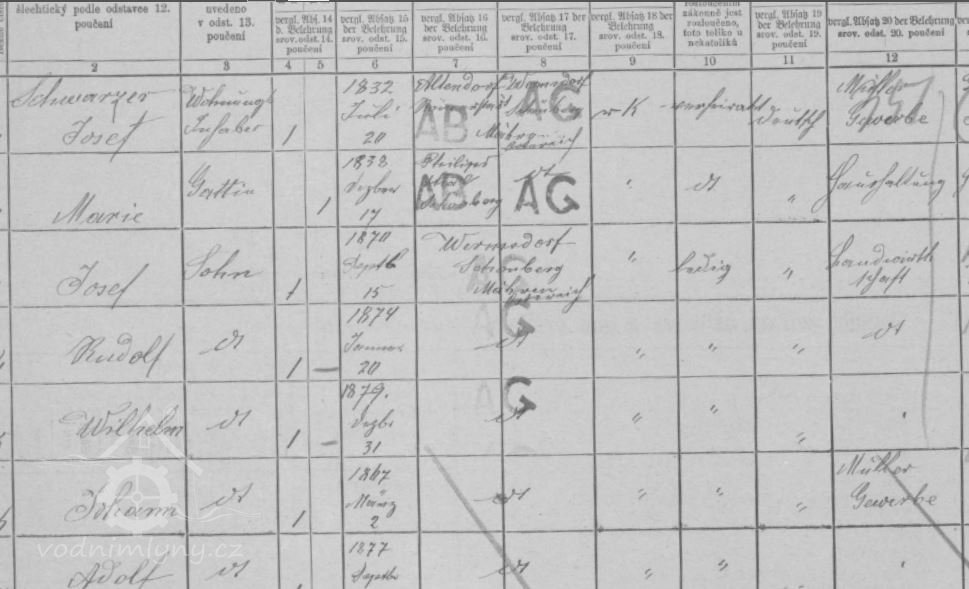 šlechtický podle odstavce 12. poučení
uvedeno v odst. 13. poučení
vergl. Abs. 14 d. Belehrung srov. odst. 14. poučení
vergl. Absatz 15 der Belehrung srov. odst. 15. poučení
vergl. Absatz 16 der Belehrung srov. odst. 16. poučení
vergl. Absatz 17 der Belehrung srov. odst. 17. poučení
vergl. Absatz 18 der Belehrung srov. odst. 18. poučení
zákonně jest rozloučeno, toto toliko u nekatolíků
vergl. Absatz 19 der Belehrung srov. odst. 19. poučení
vergl. Absatz 20 der Belehrung srov. odst. 20. poučení
2 3 4 5 6 7 8 9 10 11 12
Schwarzer Wohnungs 1832 Altendorf Müller
Josef Inhaber 1 Juli 20 Mähren Österreich rK verheiratht Deutsch Gewerbe
AB AG
Marie Gattin 1 1838 Dezber 17 Schönberg dt " dt " Haushaltung
AB AG
Josef Sohn 1 1870 Septb 15 Wermsdorf Schönberg Mähren Österreich " ledig " Landwirth schaft
AG
Rudolf dt 1 – 1874 Januar 20 dt " " " dt
AG
Wilhelm dt 1 – 1879. Dezbr 31 dt " " " "
AG
Johann dt 1 1867 März 2 dt " " " Müller Gewerbe
Adolf dt 1877 Septb dt " " " "
vodnimlyny.cz